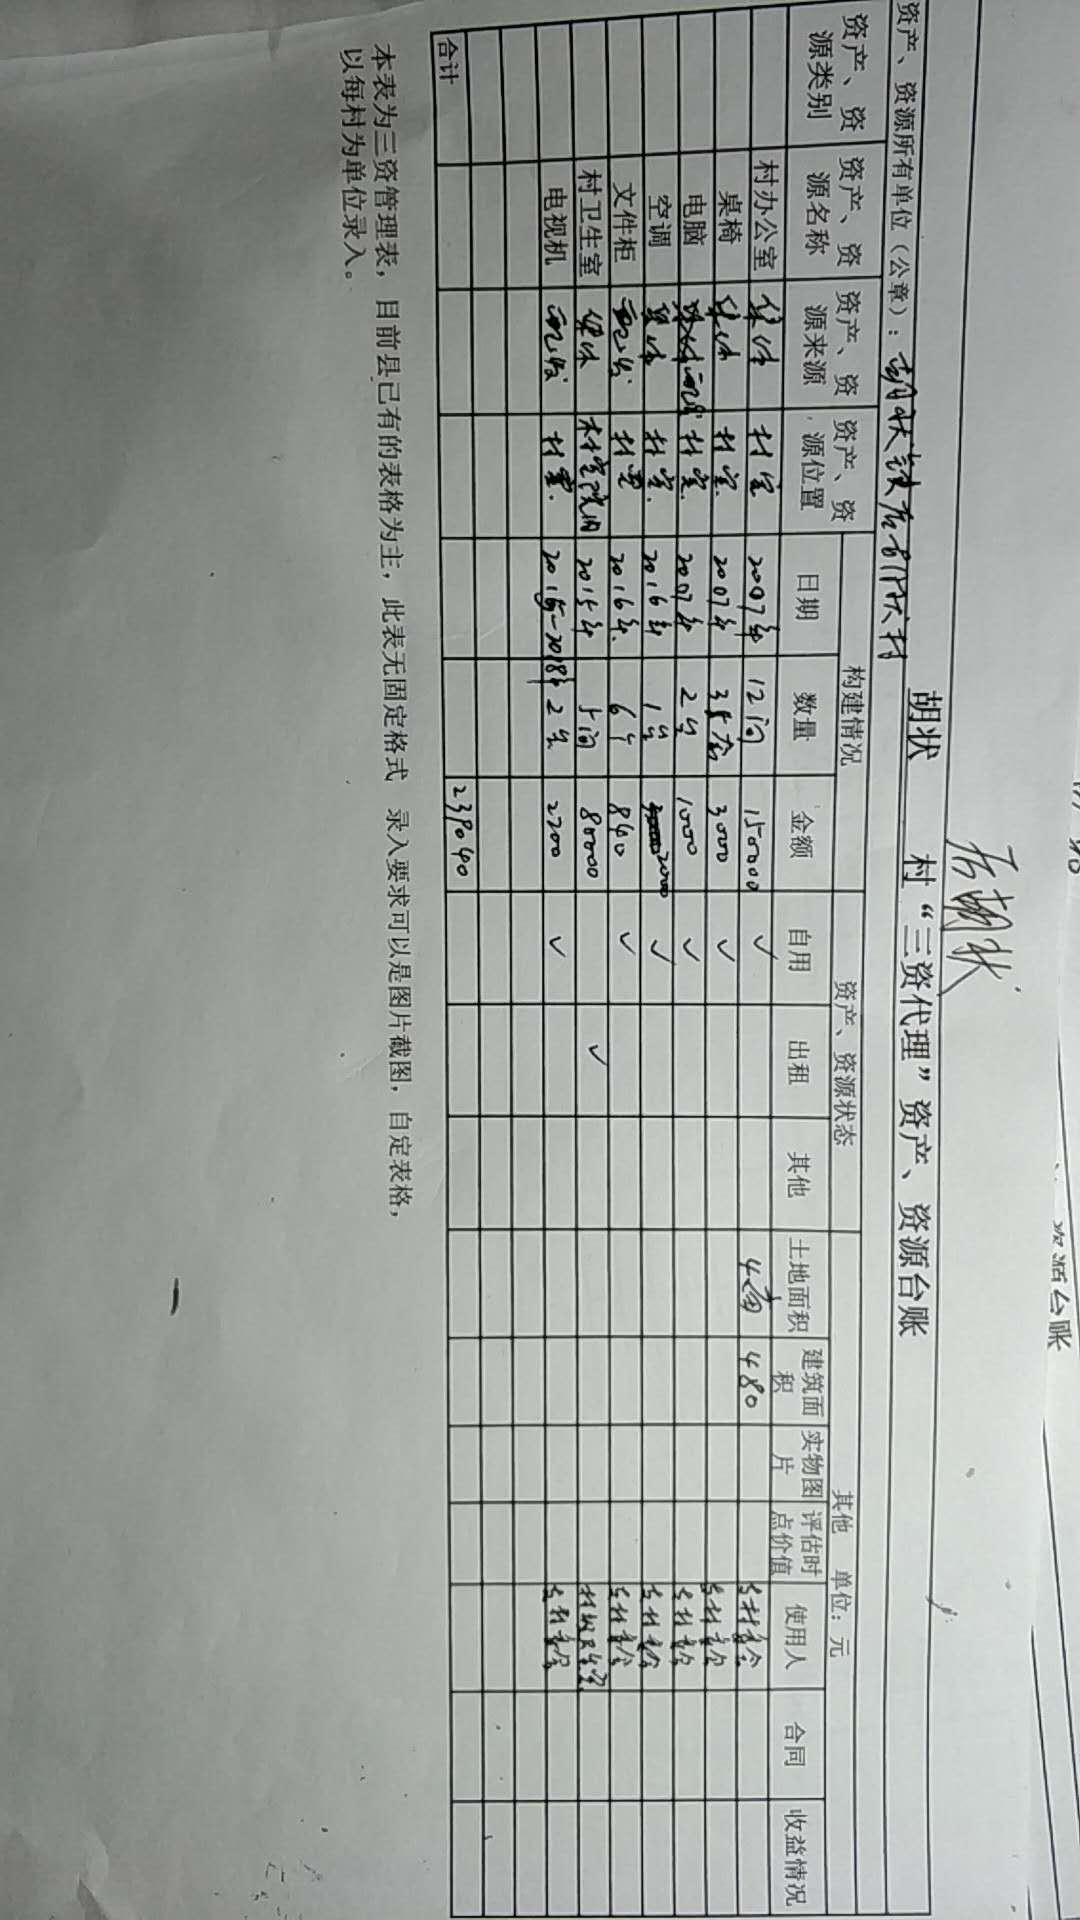 资源台账
后胡状
胡状 村“三资代理”资产、资源台账
资产、资源所有单位（公章）：胡状镇后胡状村
单位：元
资产、资源类别 资产、资源名称 资产、资源来源 资产、资源位置 构建情况 资产、资源状态 其他
日期 数量 金额 自用 出租 其他 土地面积 建筑面积 实物图片 评估时点价值 使用人 合同 收益情况
村办公室 集体 村室 2007年 12间 150000 ✓ 4亩 480 本村委会
桌椅 集体 村室 2007年 35套 3000 ✓ 本村委会
电脑 配发 村室 2007年 2台 10000 ✓ 本村委会
空调 集体 村室 2016年 1台 2000 ✓ 本村委会
文件柜 配发 村室 2016年 6个 840 ✓ 本村委会
村卫生室 集体 村室院内 2015年 5间 80000 ✓
电视机 配发 村室 2015-2018年 2台 2200 ✓ 本村委会
合计 239040
本表为三资管理表，目前县已有的表格为主，此表无固定格式 录入要求可以是图片截图，自定表格，
以每村为单位录入。